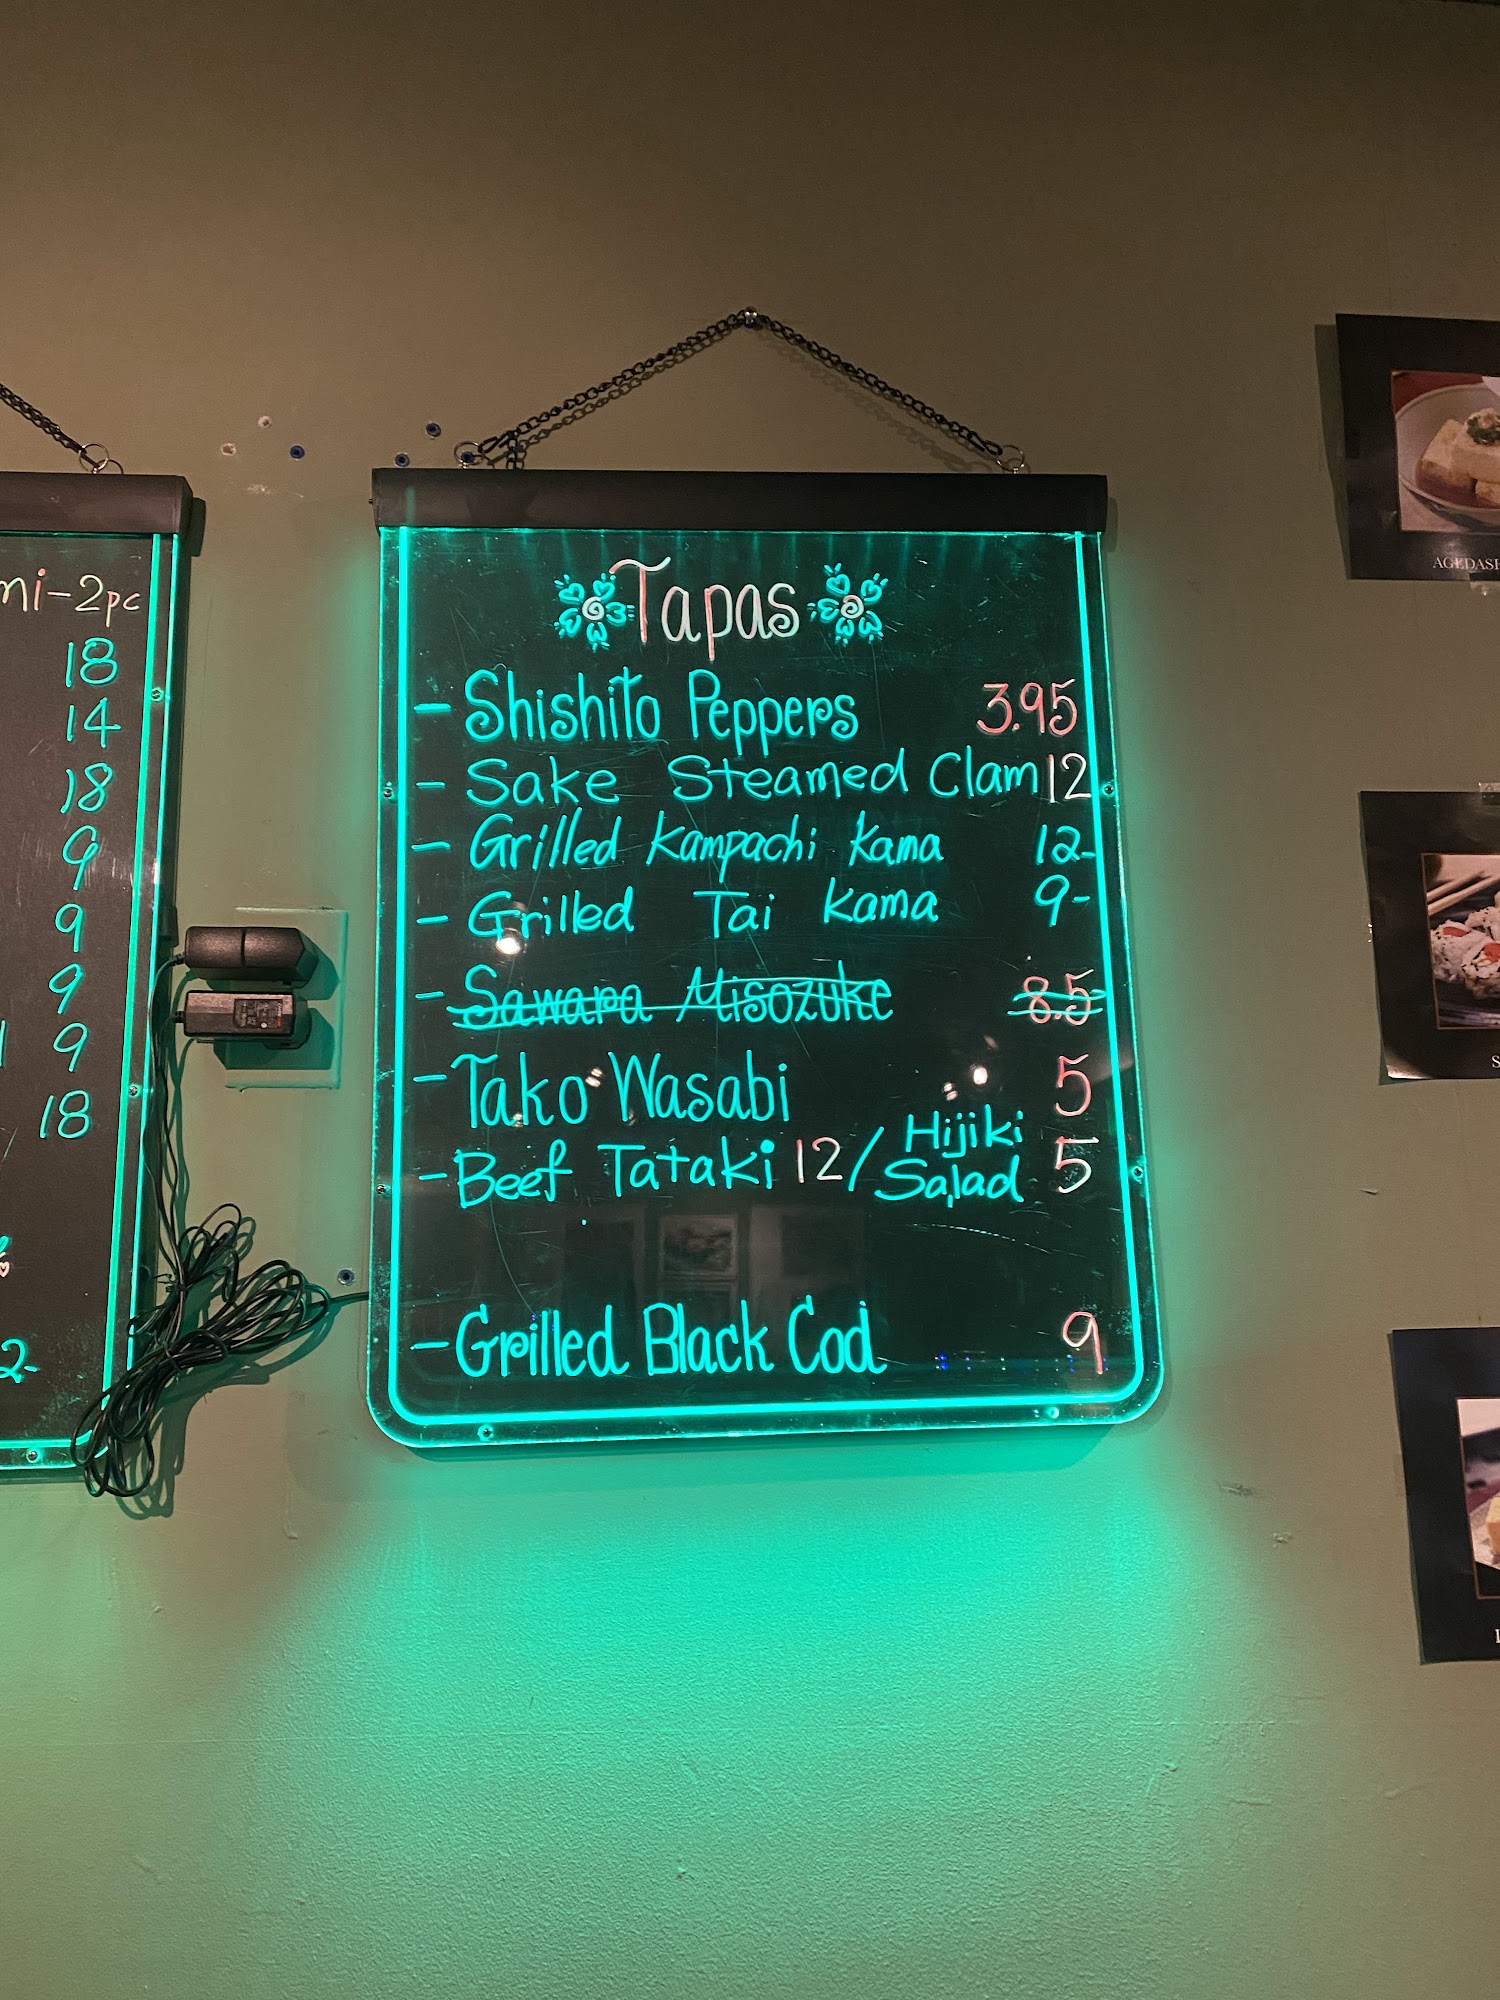 mi-2pc
18
14
18
9
9
9
9
18
2-
Tapas
- Shishito Peppers 3.95
- Sake Steamed Clam 12
- Grilled Kampachi Kama 12-
- Grilled Tai Kama 9-
- Sawara Misozuke 8.5
- Tako Wasabi 5
- Beef Tataki 12/ Hijiki Salad 5
- Grilled Black Cod 9
AGEDASH
S